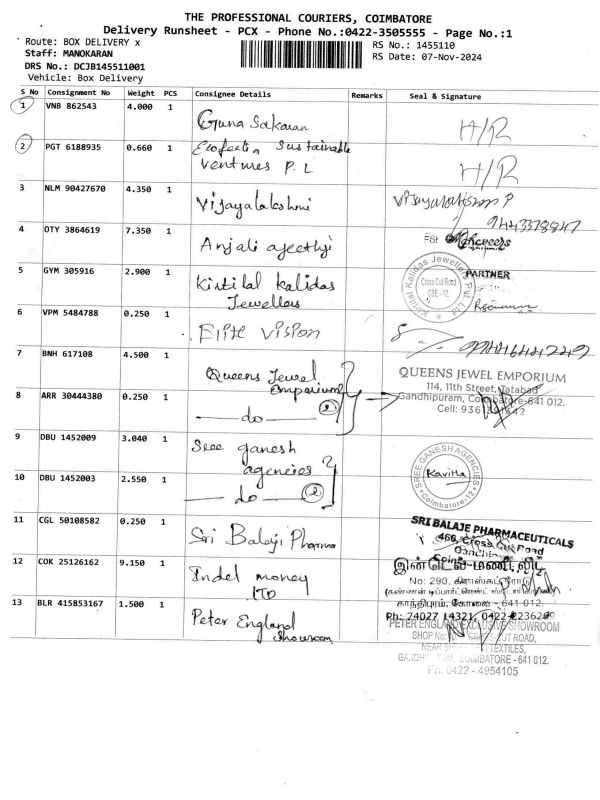 THE PROFESSIONAL COURIERS, COIMBATORE
Delivery Runsheet - PCX - Phone No.:0422-3505555 - Page No.:1
Route: BOX DELIVERY x
RS No.: 1455110
Staff: MANOKARAN
RS Date: 07-Nov-2024
DRS No.: DCJB145511001
Vehicle: Box Delivery
S No Consignment No Weight PCS Consignee Details Remarks Seal & Signature
1 VNB 862543 4.000 1 Guna Sakaran H/R
2 PGT 6188935 0.660 1 Sustainable
ventures P. L H/R
3 NLM 90427670 4.350 1 Vijayalakshmi
4 OTY 3864619 7.350 1 Anjali
For
5 GYM 305916 2.900 1 Kirtilal Kalidas
Jewellers
Kirtilal Kalidas Jewellers Pvt. Ltd
Cross Cut Road
CBE - 12.
PARTNER
6 VPM 5484788 0.250 1 Elite Vision
7 BNH 617108 4.500 1 Queens Jewel
Emporium
QUEENS JEWEL EMPORIUM
114, 11th Street, Tatabad
8 ARR 30444380 0.250 1 do 2
Gandhipuram, Coimbatore-641 012.
Cell: 936
9 DBU 1452009 3.040 1 Sree ganesh
agencies
SREE GANESH AGENCIES
Kavitha
Coimbatore-12
10 DBU 1452003 2.550 1 do 2
11 CGL 50108582 0.250 1 Sri Balaji Pharma
SRI BALAJE PHARMACEUTICALS
466, Cross Cut Road
12 COK 25126162 9.150 1 Indel money
LTD
இன்டெல் மணி லிட்
No: 290, கிராஸ்கட் ரோடு
காந்திபுரம், கோவை - 641 012.
Ph: 74027 14321, 0422
13 BLR 415853167 1.500 1 Peter England
Showroom
PETER ENGLAND EXCLUSIVE SHOWROOM
SHOP No: CUT ROAD,
NEAR TEXTILES,
COIMBATORE - 641 012.
Ph: 0422 - 4954105